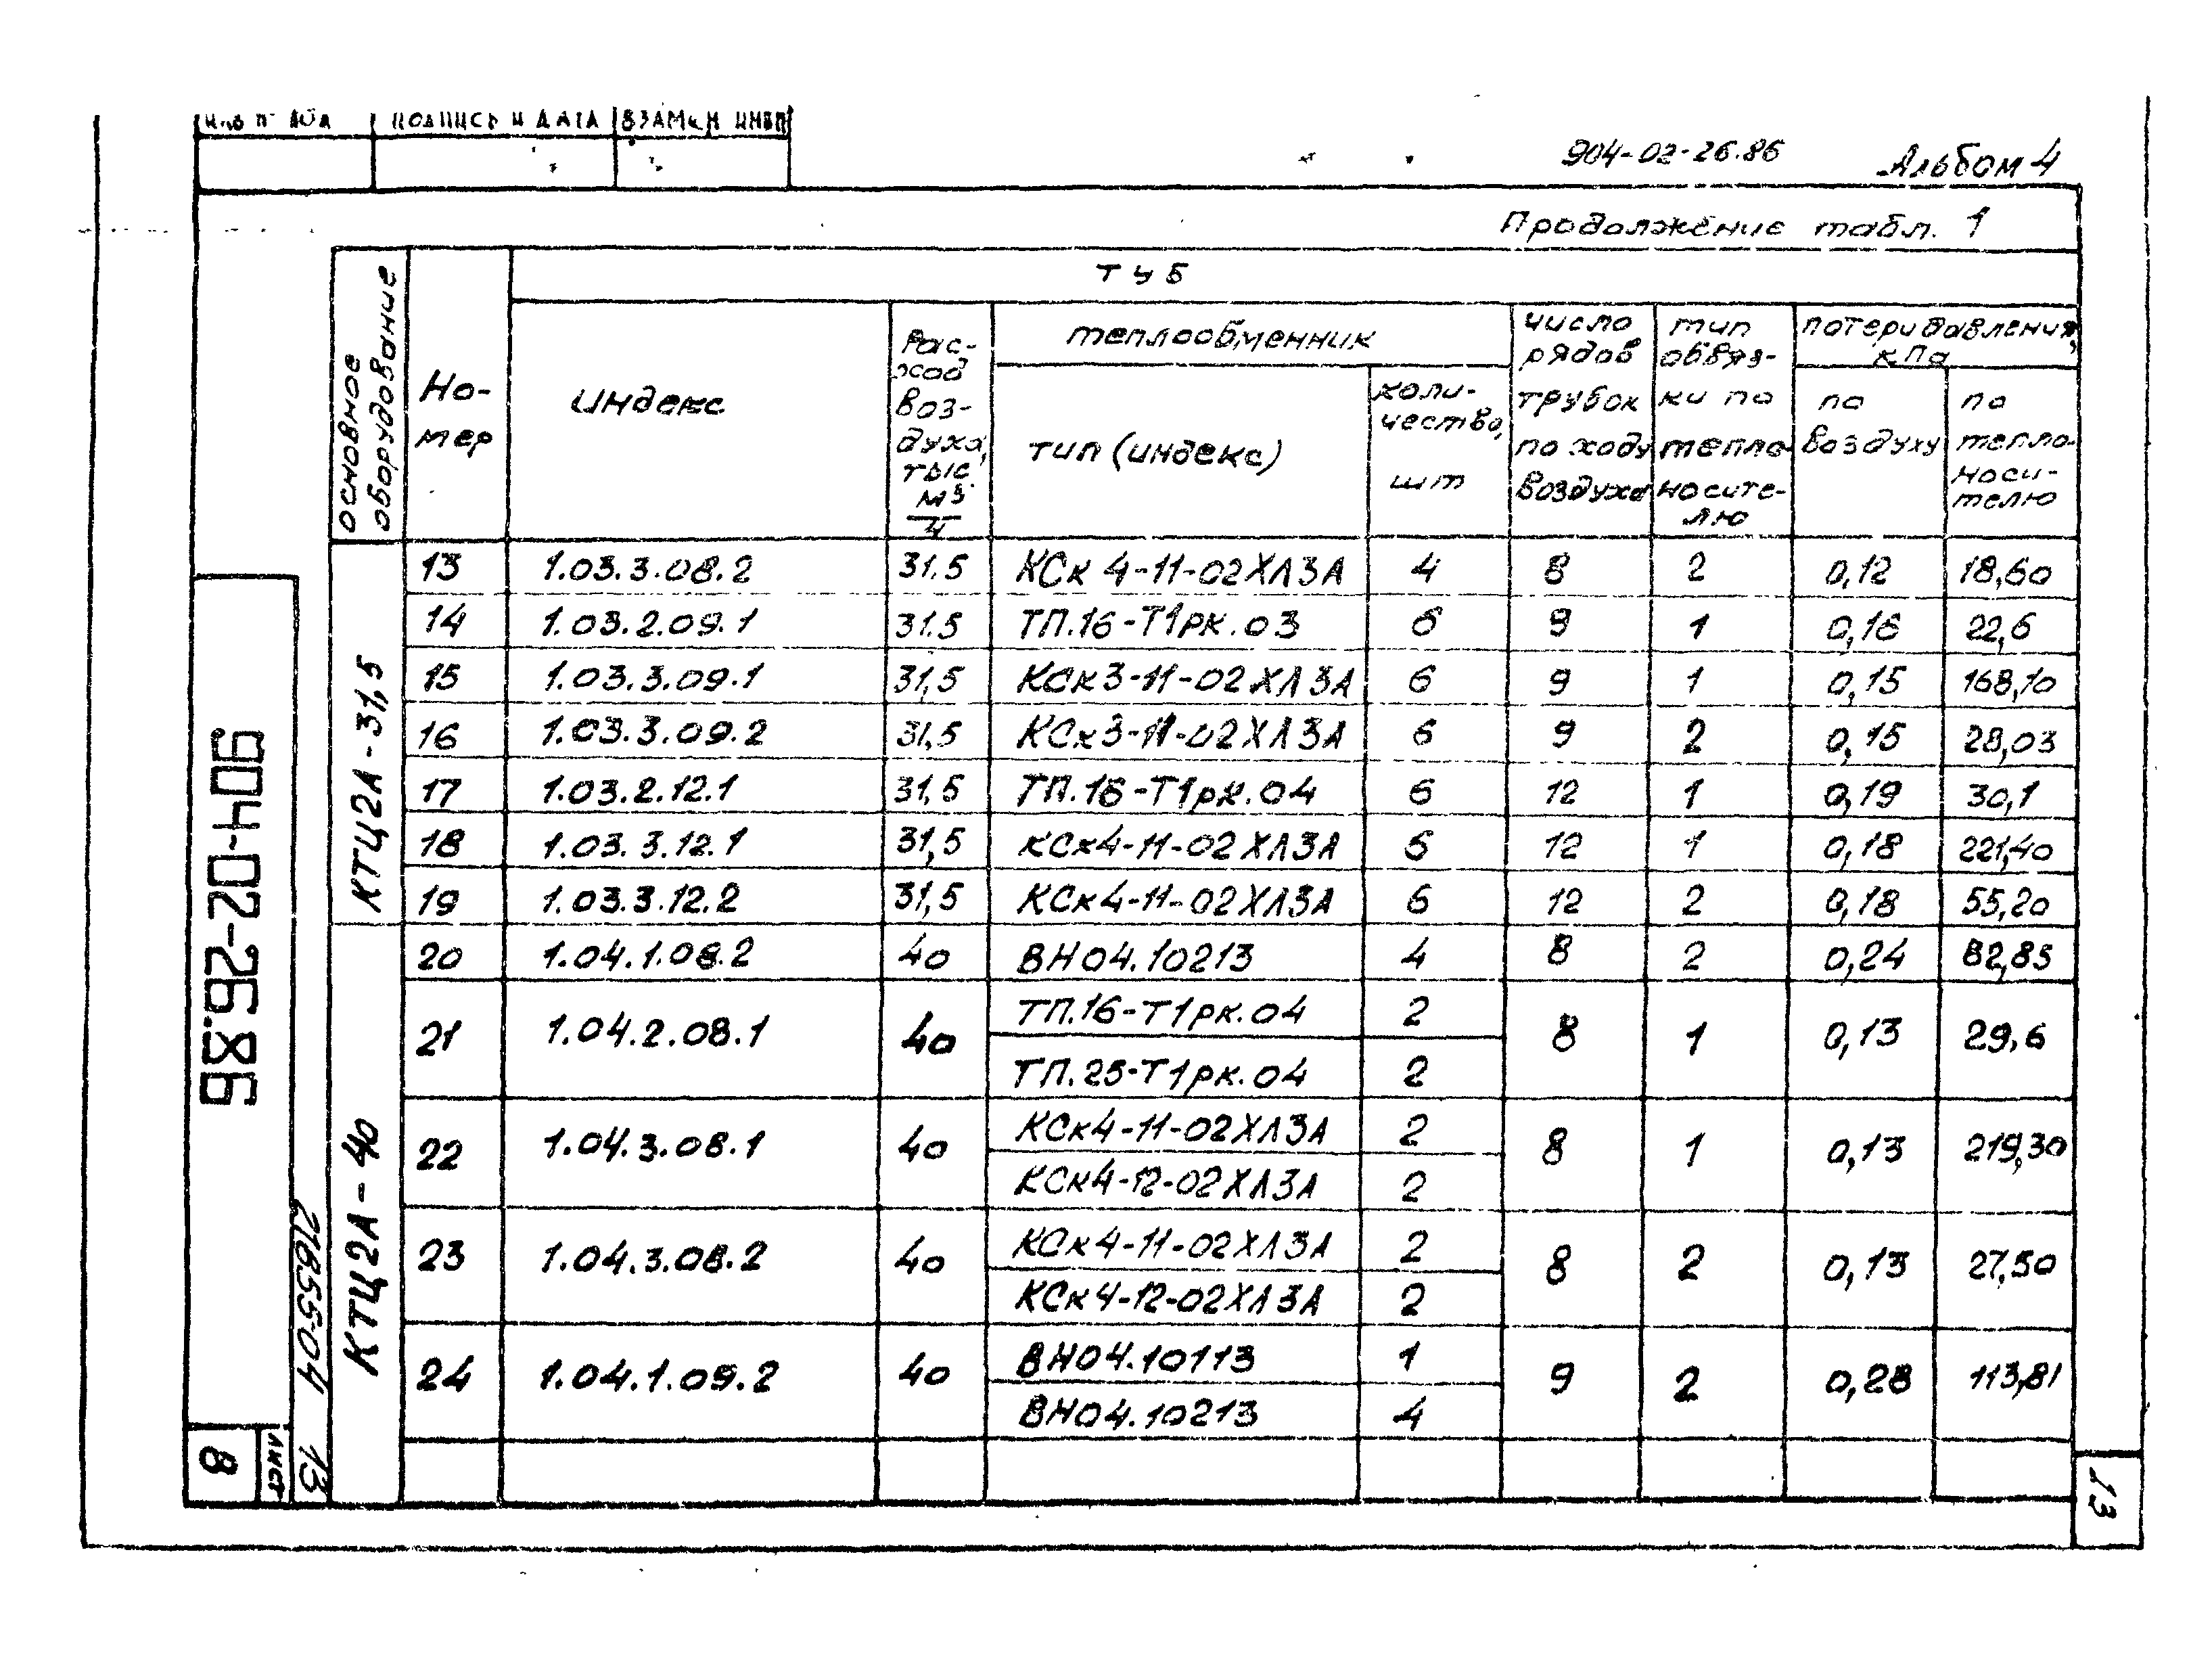 ПОДПИСЬ И ДАТА ВЗАМЕН ИНВ
904-02-26.86 Альбом 4
Продолжение табл. 1
Основное оборудование
Номер
ТУБ
индекс
Рас-
ход
воз-
духа,
тыс
м³
ч
теплообменник
тип (индекс)
коли-
чество,
шт
число
рядов
трубок
по ходу
воздуха
тип
обвяз-
ки по
тепло-
носите-
лю
потери давления,
кПа
по
воздуху
по
тепло-
носи-
телю
КТЦ2А-31,5
13 1.03.3.08.2 31.5 КСк 4-11-02ХЛ3А 4 8 2 0,12 18,60
14 1.03.2.09.1 31.5 ТП.16-Т1рк.03 6 9 1 0,16 22,6
15 1.03.3.09.1 31,5 КСк3-11-02ХЛ3А 6 9 1 0,15 168,10
16 1.03.3.09.2 31,5 КСк3-11-02ХЛ3А 6 9 2 0,15 28,03
17 1.03.2.12.1 31,5 ТП.16-Т1рк.04 6 12 1 0,19 30,1
18 1.03.3.12.1 31,5 КСк4-11-02ХЛ3А 6 12 1 0,18 221,40
19 1.03.3.12.2 31,5 КСк4-11-02ХЛ3А 6 12 2 0,18 55,20
КТЦ2А-40
20 1.04.1.08.2 40 ВН04.10213 4 8 2 0,24 82,85
21 1.04.2.08.1 40 ТП.16-Т1рк.04 2 8 1 0,13 29,6
ТП.25-Т1рк.04 2
22 1.04.3.08.1 40 КСк4-11-02ХЛ3А 2 8 1 0,13 219,30
КСк4-12-02ХЛ3А 2
23 1.04.3.08.2 40 КСк4-11-02ХЛ3А 2 8 2 0,13 27,50
КСк4-12-02ХЛ3А 2
24 1.04.1.09.2 40 ВН04.10113 1 9 2 0,28 113,81
ВН04.10213 4
904-02-26.86
21855-04 13
Лист
8
13